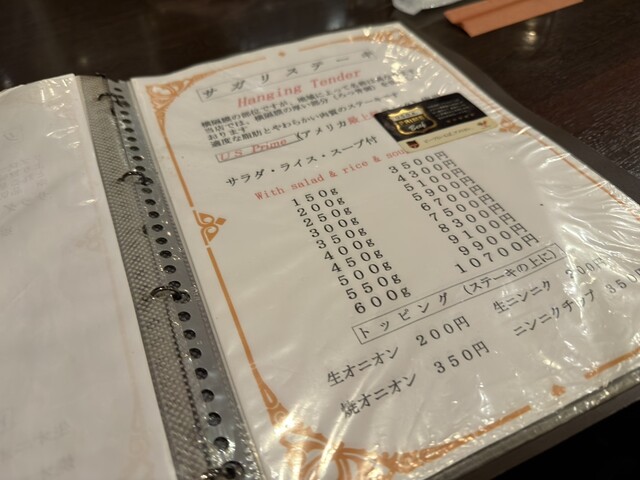 サガリステーキ
Hanging Tender
横隔膜の部位ですが、地域によって名称は
当店では、横隔膜の厚い部分
おります
適度な脂肪とやわらかい肉質のステーキです
U.S Prime (アメリカ最上
サラダ・ライス・スープ付
With salad & rice & sou
150g 3500円
200g 4300円
250g 5100円
300g 5900円
350g 6700円
400g 7500円
450g 8300円
500g 9100円
550g 9900円
600g 10700円
トッピング (ステーキの上に)
生オニオン 200円 生ニンニク 200円
焼オニオン 350円 ニンニクチップ 350